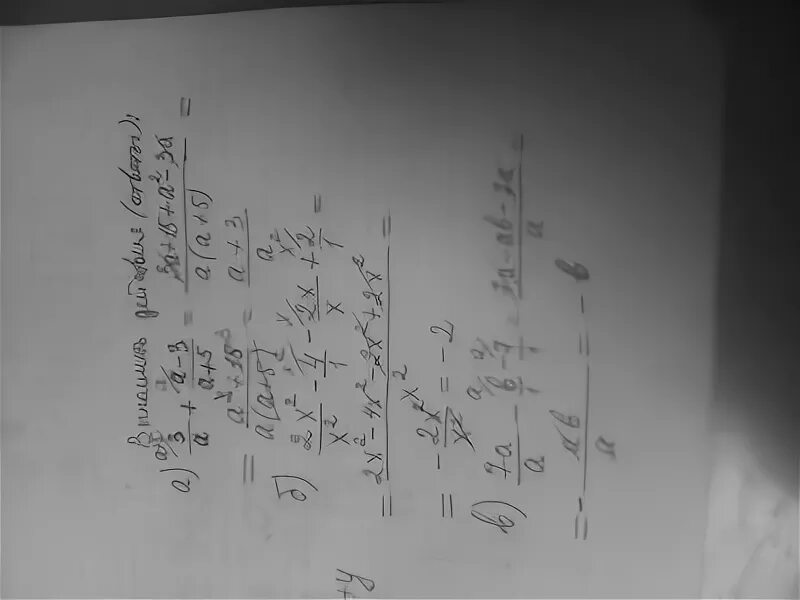 Выполнить действие (ответы):
а) 3/a + a-3/a+5 = 3a+15+a²-3a/a(a+5) =
= a²+15/a(a+5) = a+3/a
б) 2x²/x² - 4/1 - 2x/x + 2/1 =
= 2x²-4x²-2x²+2x²/x² =
= - 2x²/x² = -2
в) 7a/a - в/1 - 7/1 = 7a-aв-7a/a =
= - aв/a = - в
+y